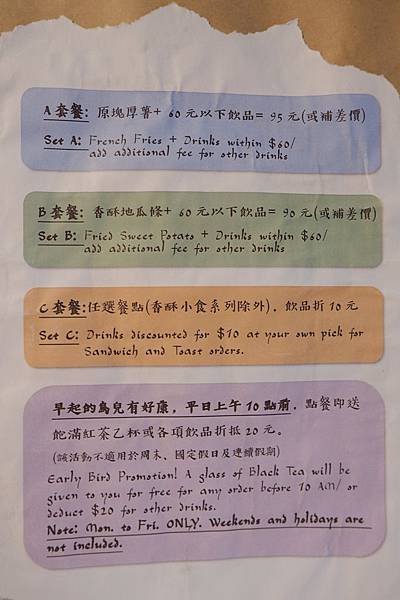 A 套餐: 原塊厚薯+ 60 元以下飲品= 95 元(或補差價)
Set A: French Fries + Drinks within $60/
add additional fee for other drinks
B 套餐: 香酥地瓜條+ 60 元以下飲品= 90 元(或補差價)
Set B: Fried Sweet Potato + Drinks within $60/
add additional fee for other drinks
C 套餐:任選餐點(香酥小食系列除外), 飲品折 10 元
Set C: Drinks discounted for $10 at your own pick for
Sandwich and Toast orders.
早起的鳥兒有好康, 平日上午 10 點前, 點餐即送
飽滿紅茶乙杯或各項飲品折抵 20 元。
(該活動不適用於周末、國定假日及連續假期)
Early Bird Promotion! A glass of Black Tea will be
given to you for free for any order before 10 AM/ or
deduct $20 for other drinks.
Note: Mon. to Fri. ONLY. Weekends and holidays are
not included.